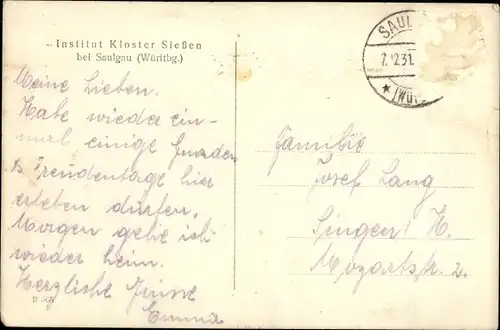 Institut Kloster Sießen
bei Saulgau (Württbg.)
Meine Lieben.
Habe wieder ein-
mal einige
Freudentage hier
erleben dürfen.
Morgen gehe ich
wieder heim.
Herzliche Grüsse
Emma
SAUL
7.12.31.
(WÜ
Familie
Josef Lang
Singen/H.
Mozartstr. 2.